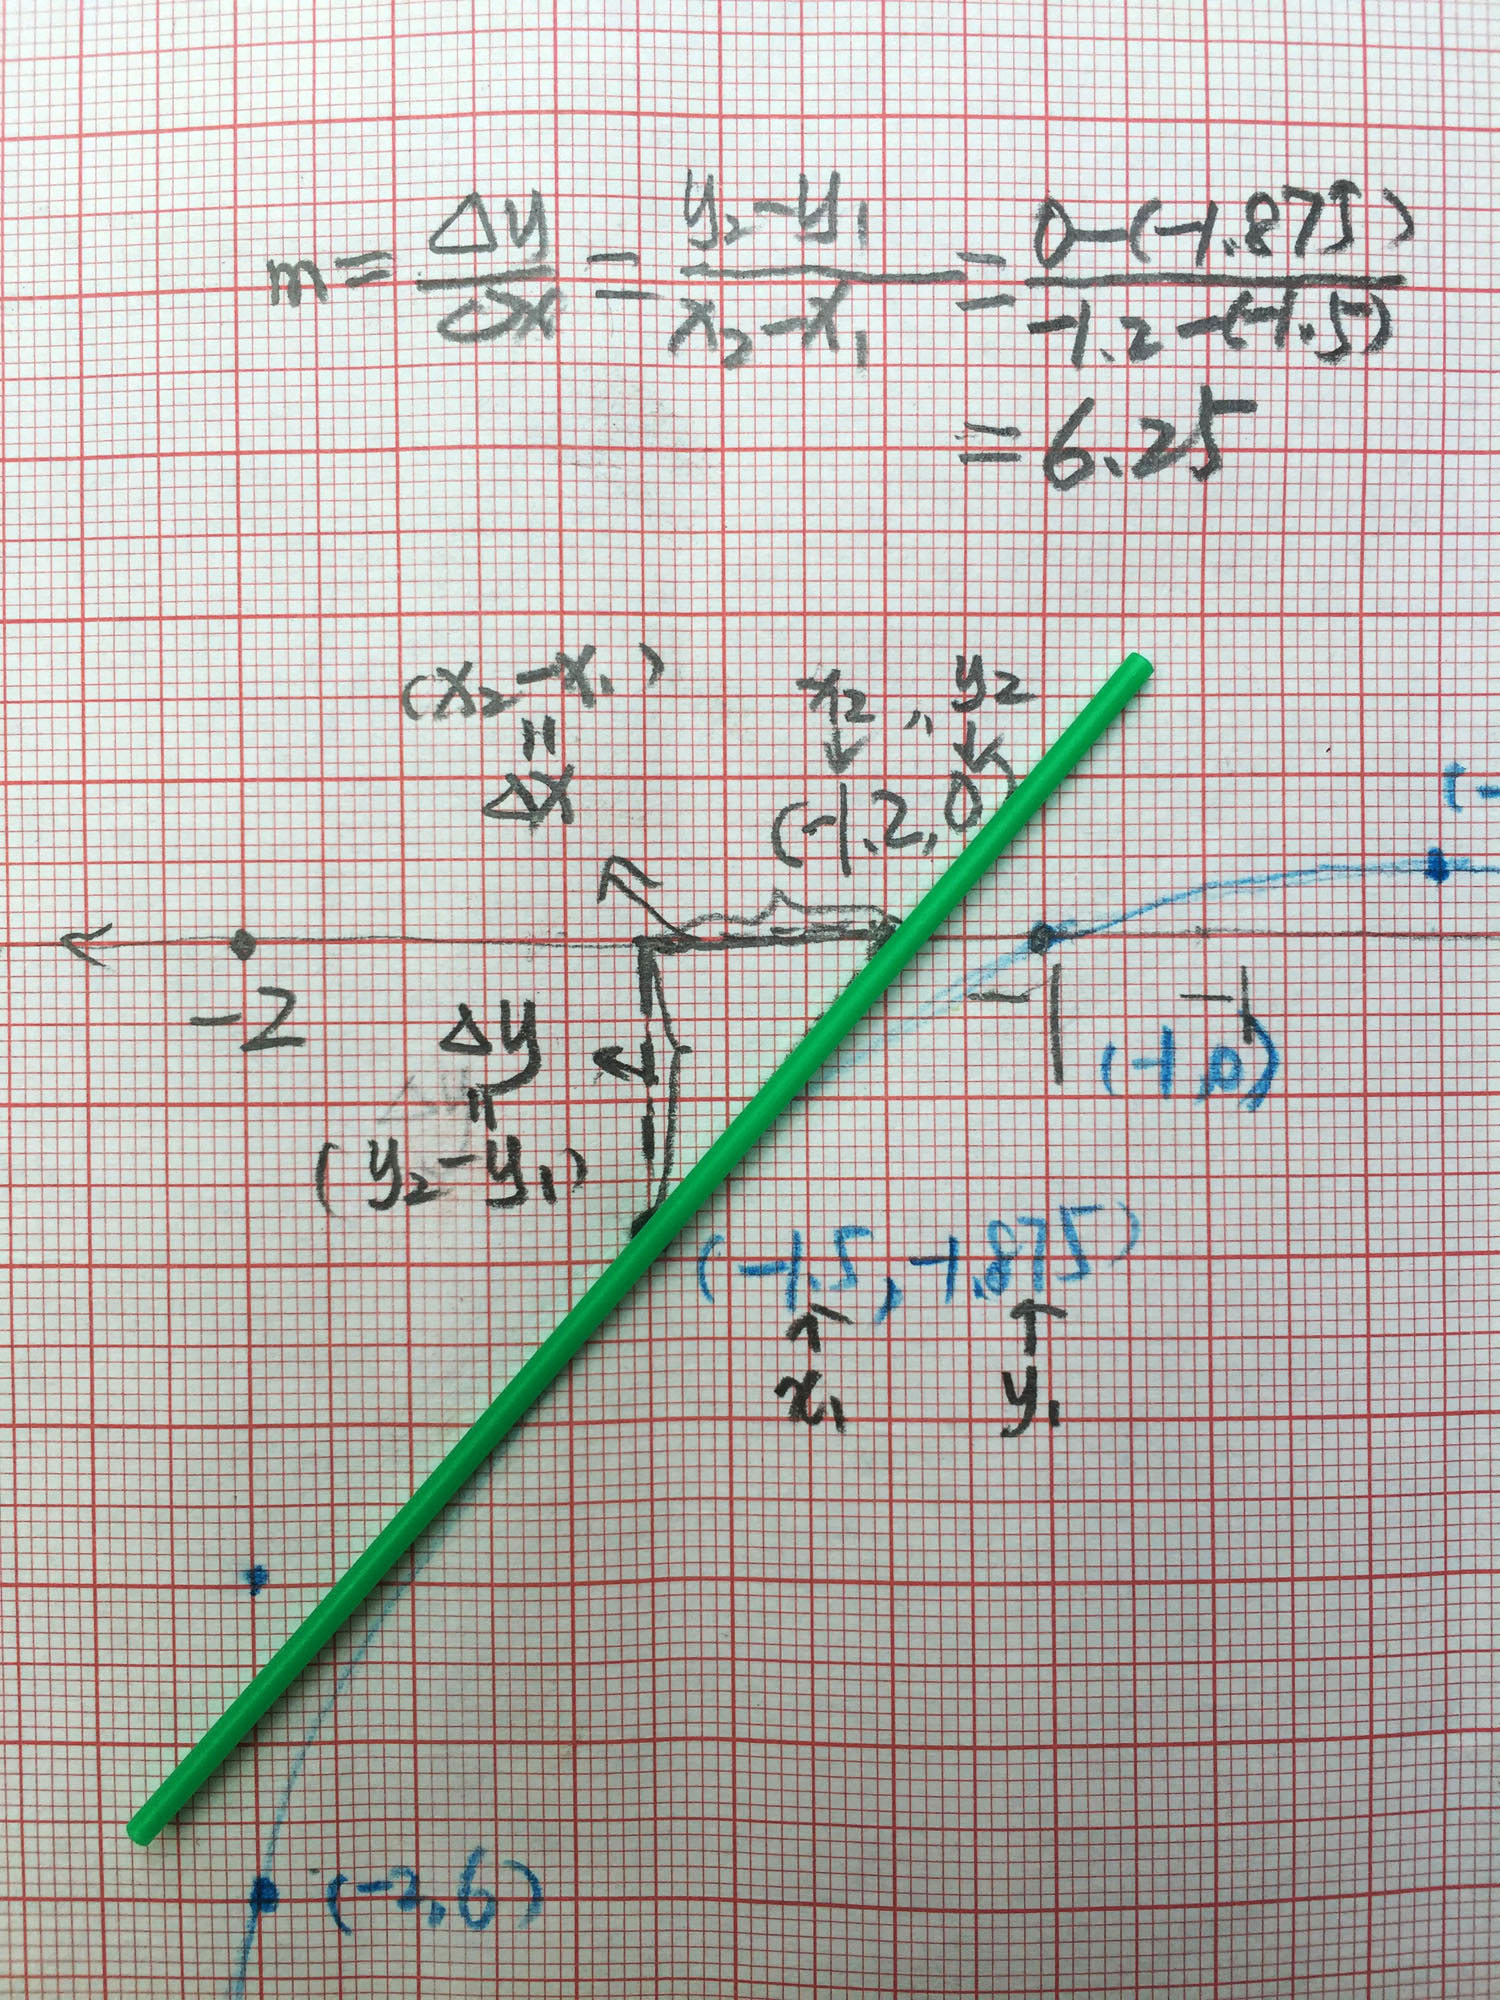 m = Δy/Δx = y₂-y₁/x₂-x₁ = 0-(-1.875)/-1.2-(-1.5)
= 6.25
(x₂-x₁)
=
Δx
x₂ , y₂
(-1.2, 0)
(-
-2
-1
-1
(-1,0)
Δy
=
(y₂-y₁)
(-1.5, -1.875)
x₁
y₁
(-2,6)